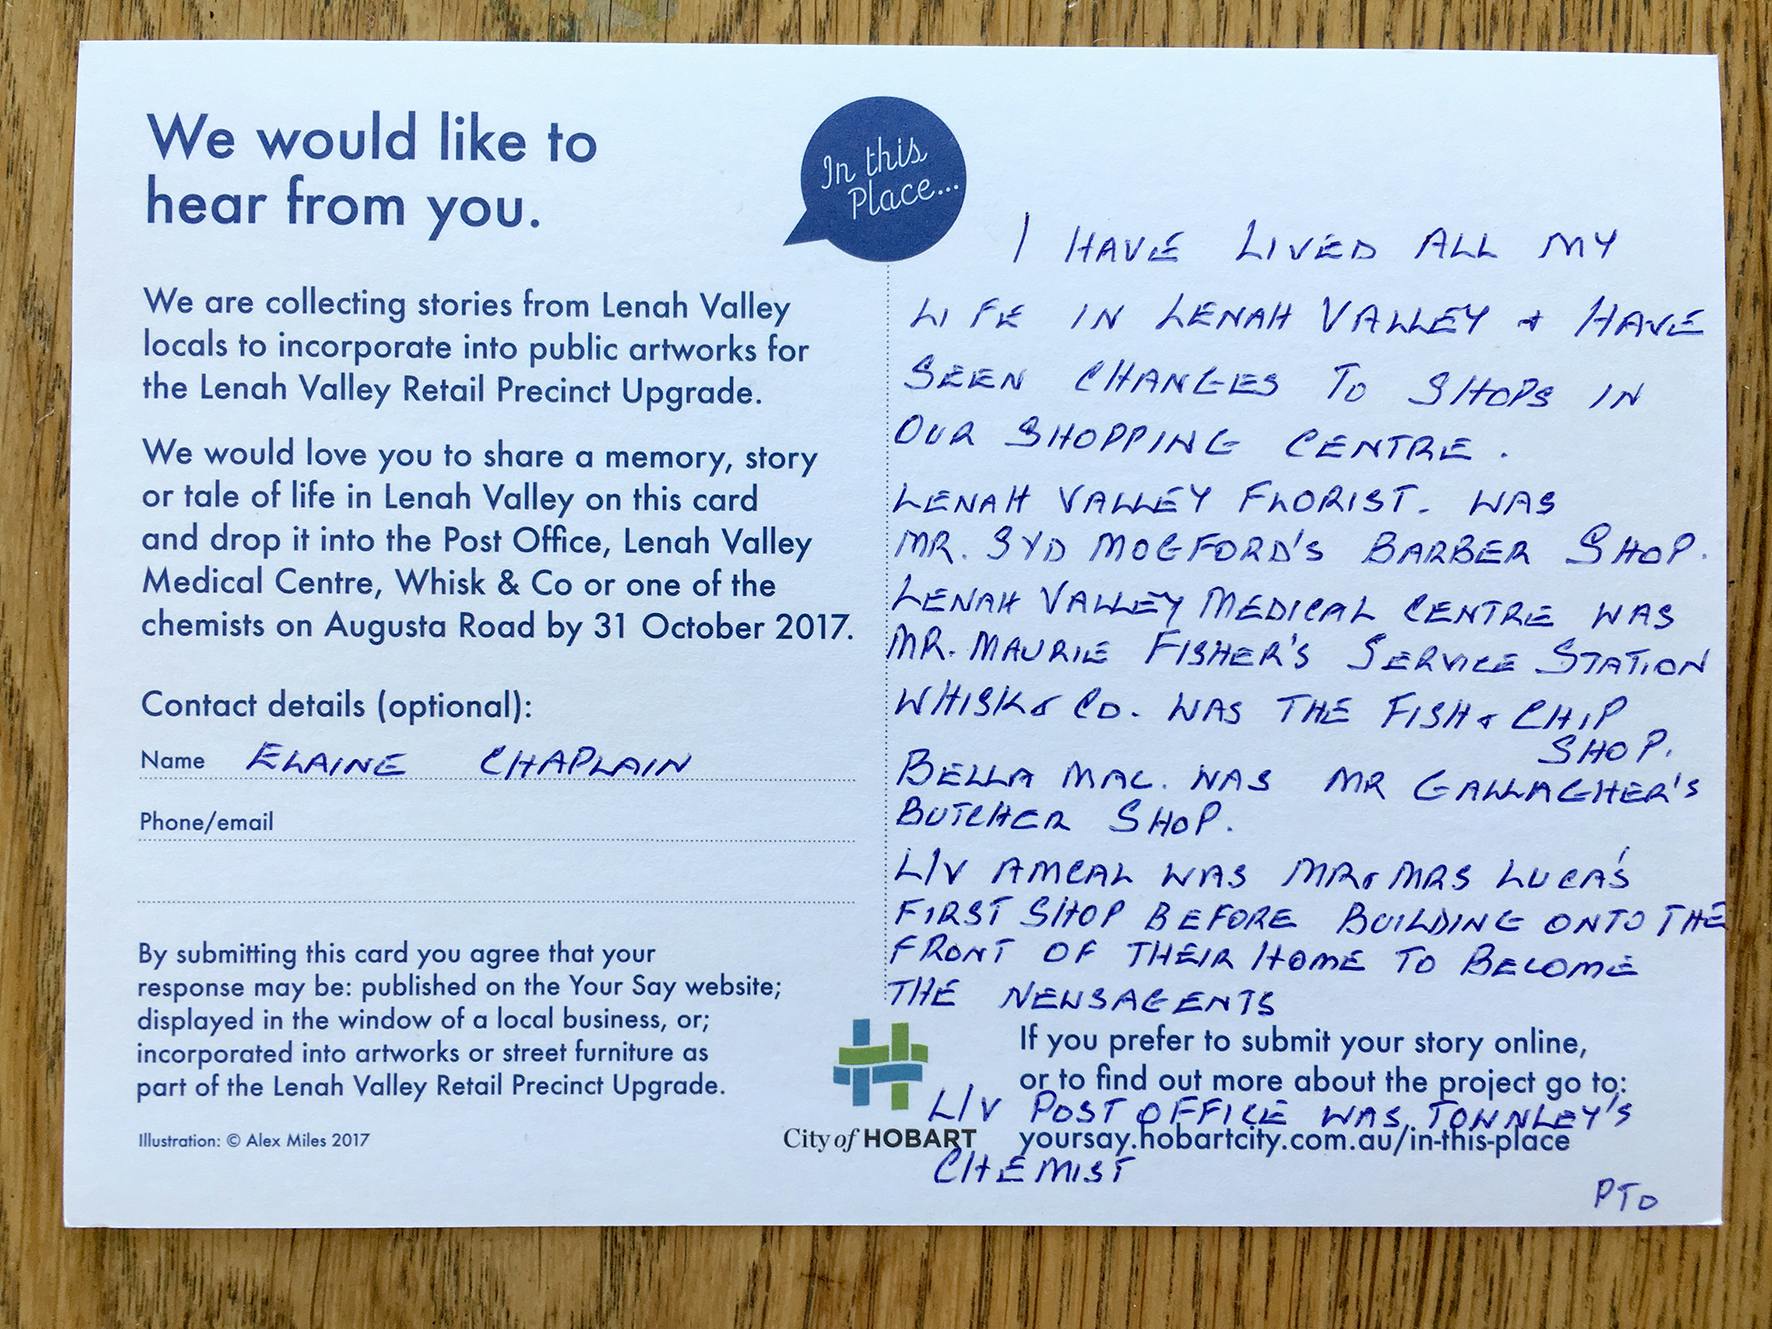 We would like to
hear from you.
In this
Place...
We are collecting stories from Lenah Valley
locals to incorporate into public artworks for
the Lenah Valley Retail Precinct Upgrade.
We would love you to share a memory, story
or tale of life in Lenah Valley on this card
and drop it into the Post Office, Lenah Valley
Medical Centre, Whisk & Co or one of the
chemists on Augusta Road by 31 October 2017.
Contact details (optional):
Name ELAINE CHAPLAIN
Phone/email
By submitting this card you agree that your
response may be: published on the Your Say website;
displayed in the window of a local business, or;
incorporated into artworks or street furniture as
part of the Lenah Valley Retail Precinct Upgrade.
Illustration: © Alex Miles 2017
I HAVE LIVED ALL MY
LIFE IN LENAH VALLEY & HAVE
SEEN CHANGES TO SHOPS IN
OUR SHOPPING CENTRE.
LENAH VALLEY FLORIST. WAS
MR. SYD MOGFORD'S BARBER SHOP.
LENAH VALLEY MEDICAL CENTRE WAS
MR. MAURIE FISHER'S SERVICE STATION
WHISK & CO. WAS THE FISH & CHIP
SHOP.
BELLA MAC. WAS MR GALLAGHER'S
BUTCHER SHOP.
L/V AMCAL WAS MR & MRS LUCAS
FIRST SHOP BEFORE BUILDING ONTO THE
FRONT OF THEIR HOME TO BECOME
THE NEWSAGENTS
City of HOBART
If you prefer to submit your story online,
or to find out more about the project go to:
L/V POST OFFICE WAS TOWNLEY'S
yoursay.hobartcity.com.au/in-this-place
CHEMIST
PTO